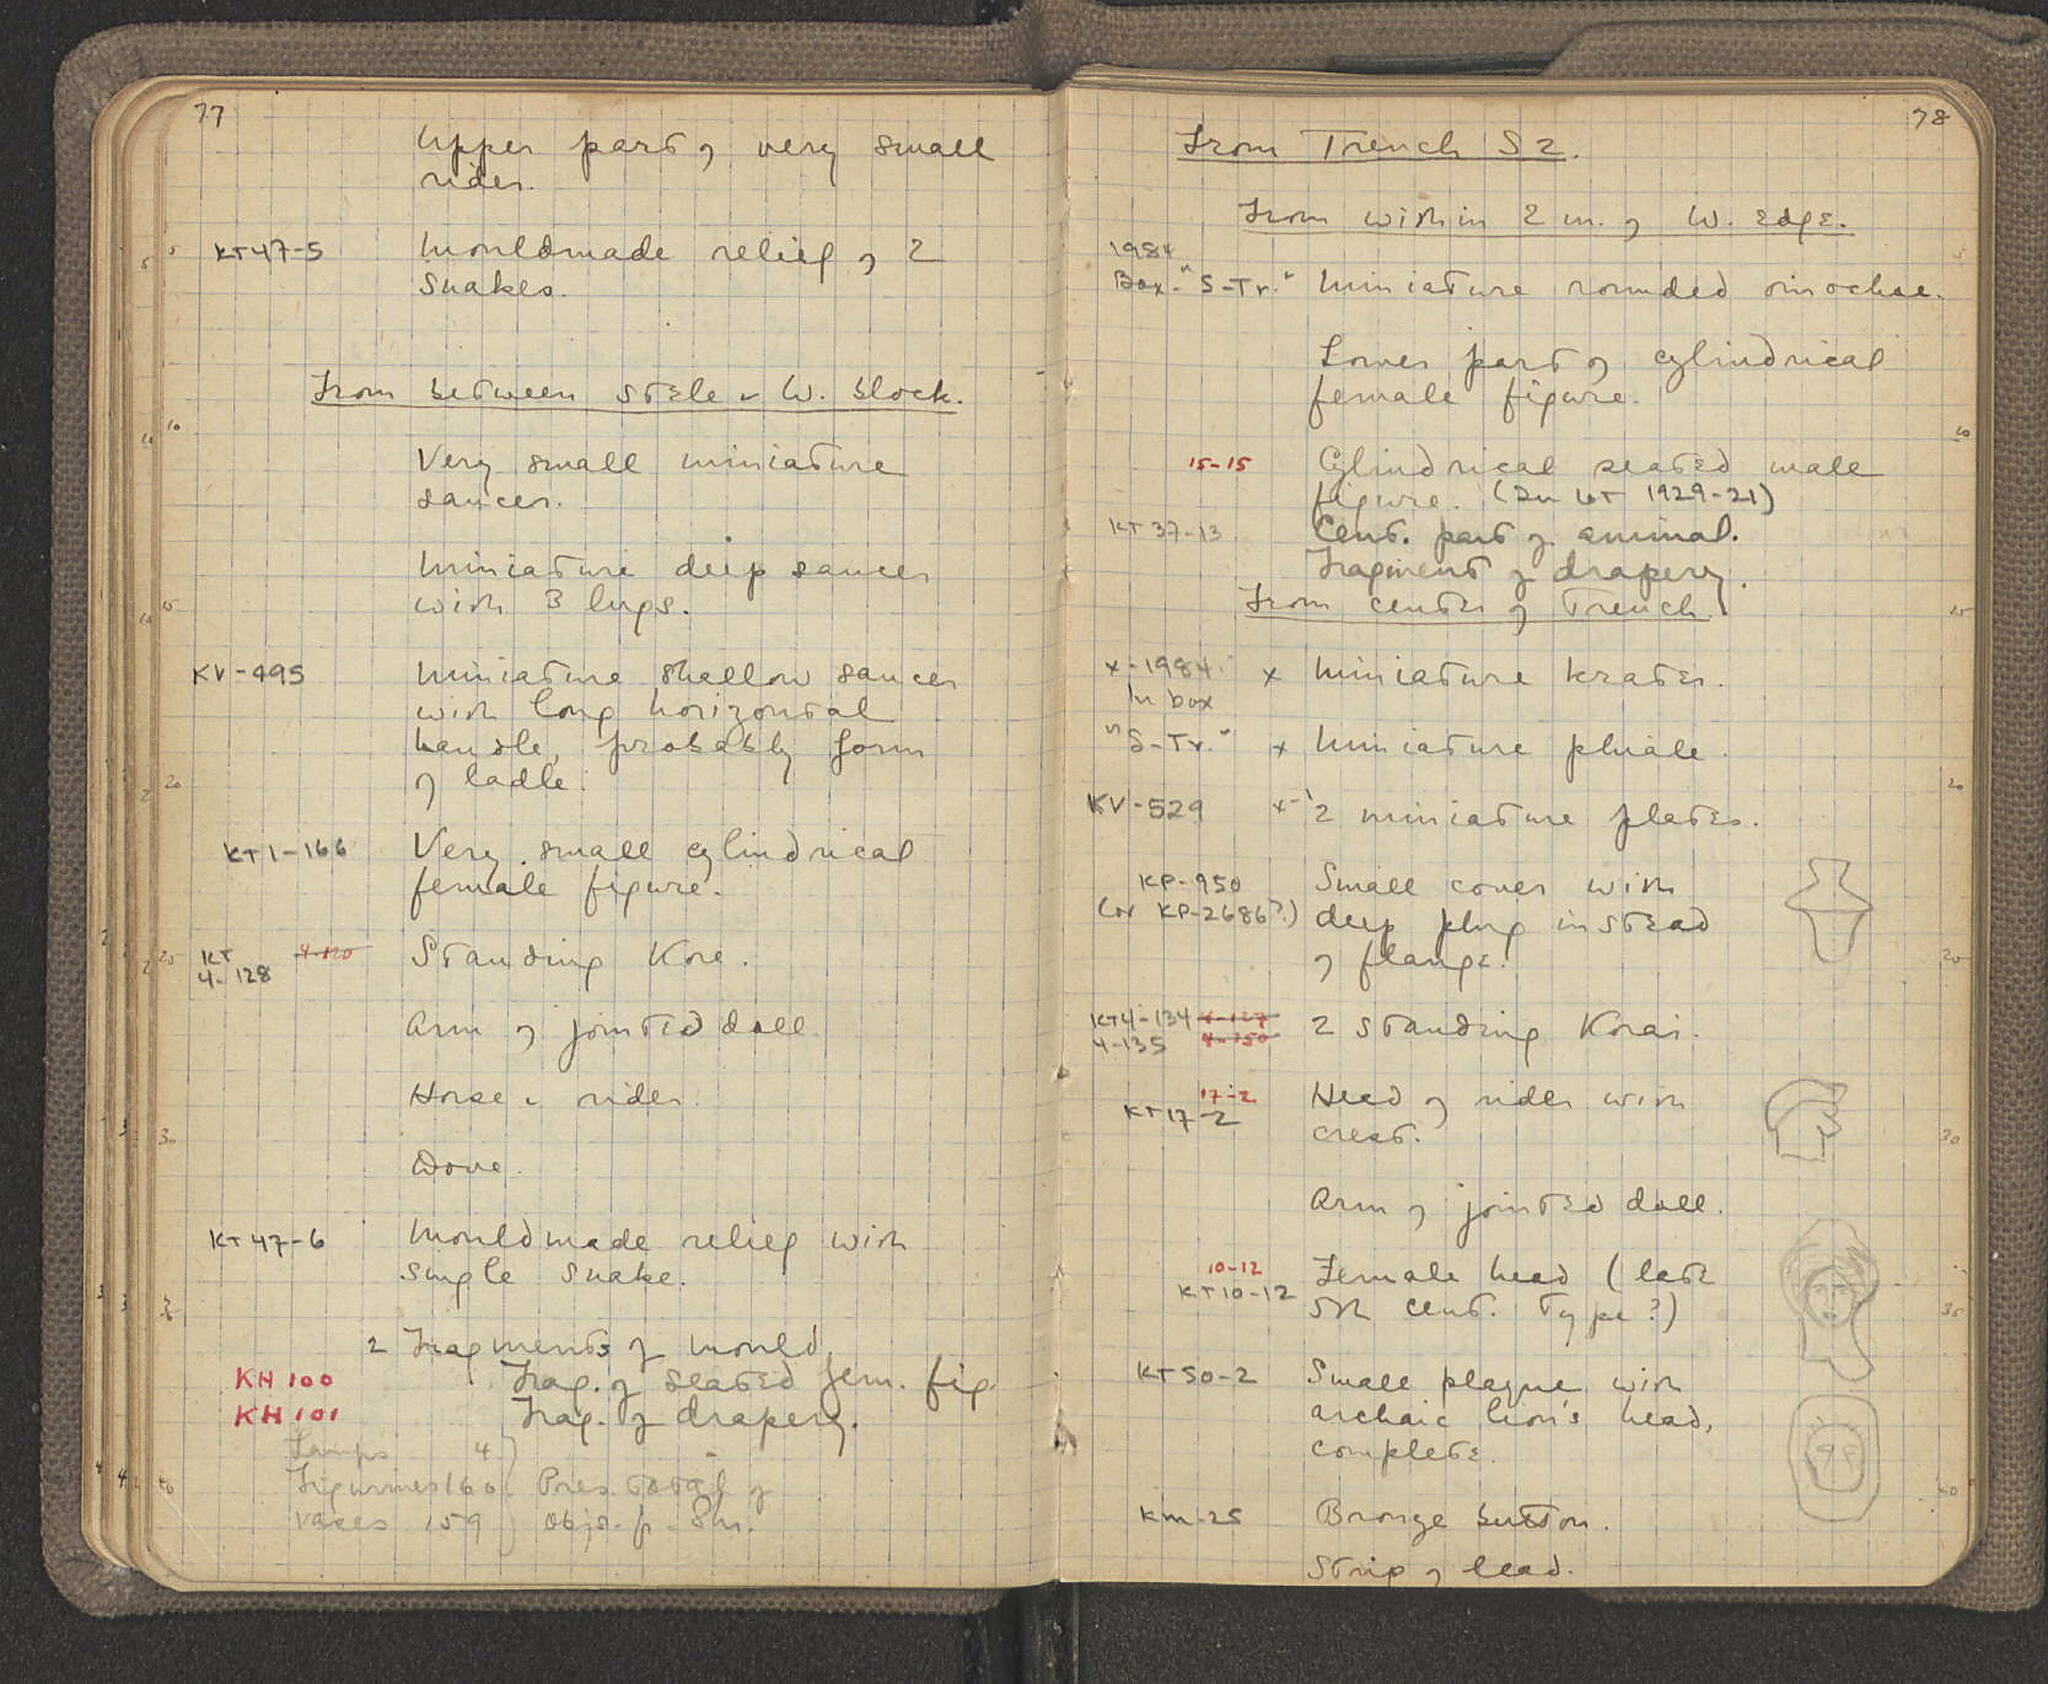 77
Upper part of very small
rider.
KT47-5 Mouldmade relief of 2
snakes.
From between stele & W. block.
Very small miniature
saucer.
Miniature deep saucer
with 3 lugs.
KV-495 Miniature shallow saucer
with long horizontal
handle, probably form
of ladle.
KT1-166 Very small cylindrical
female figure.
KT Standing Kore.
4-128
Arm of jointed doll
Horse & rider.
Dove.
KT47-6 Mouldmade relief with
single snake.
2 Fragments of mould
KH 100 Frag. of seated fem. fig.
KH 101 Frag. of drapery.
Lamps 4
Figurines 160 Pres. total of
Vases 159 objs. fr. Shr.
78
From Trench S 2.
From within 2 m. of W. edge.
1984
Box "S-Tr." Miniature rounded oinochoe.
Lower part of cylindrical
female figure.
15-15 Cylindrical seated male
figure. (In lot 1929-21)
KT37-13 Cent. part of animal.
Fragment of drapery.
From center of Trench.
x-1984 x Miniature krater.
In box
"S-Tr." x Miniature phiale.
KV-529 x-2 miniature plates.
KP-950 Small cover with
(or KP-2686?) deep plug instead
of flange.
KT4-134 2 standing Korai.
4-135
17-2 Head of rider with
KT17-2 crest.
Arm of jointed doll.
10-12 Female head (late
KT10-12 5th cent. type?)
KT50-2 Small plaque with
archaic lion's head,
complete.
KM-25 Bronze button.
Strip of lead.